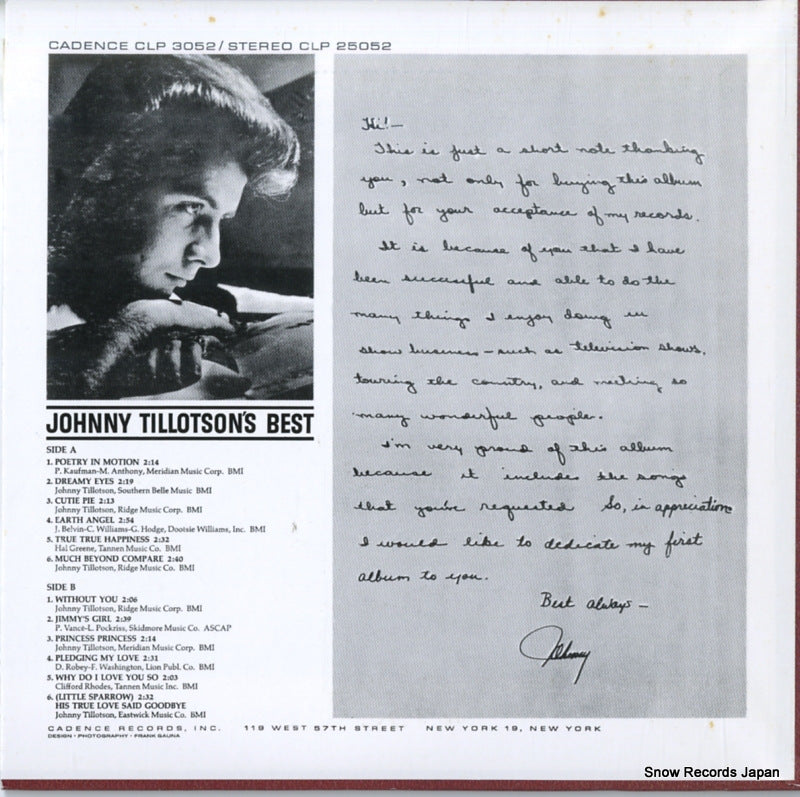 CADENCE CLP 3052/STEREO CLP 25052
JOHNNY TILLOTSON'S BEST
SIDE A
1. POETRY IN MOTION 2:14
P. Kaufman-M. Anthony, Meridian Music Corp. BMI
2. DREAMY EYES 2:19
Johnny Tillotson, Southern Belle Music BMI
3. CUTIE PIE 2:13
Johnny Tillotson, Ridge Music Corp. BMI
4. EARTH ANGEL 2:54
J. Belvin-C. Williams-G. Hodge, Dootsie Williams, Inc. BMI
5. TRUE TRUE HAPPINESS 2:32
Hal Greene, Tannen Music Co. BMI
6. MUCH BEYOND COMPARE 2:40
Johnny Tillotson, Ridge Music Co. BMI
SIDE B
1. WITHOUT YOU 2:06
Johnny Tillotson, Ridge Music Corp. BMI
2. JIMMY'S GIRL 2:39
P. Vance-L. Pockriss, Skidmore Music Co. ASCAP
3. PRINCESS PRINCESS 2:14
Johnny Tillotson, Meridian Music Corp. BMI
4. PLEDGING MY LOVE 2:31
D. Robey-F. Washington, Lion Publ. Co. BMI
5. WHY DO I LOVE YOU SO 2:03
Clifford Rhodes, Tannen Music Inc. BMI
6. (LITTLE SPARROW) 2:32
HIS TRUE LOVE SAID GOODBYE
Johnny Tillotson, Eastwick Music Co. BMI
Hi!—
This is just a short note thanking
you, not only for buying this album
but for your acceptance of my records.
It is because of you that I have
been successful and able to do the
many things I enjoy doing in
show business – such as television shows,
touring the country, and meeting so
many wonderful people.
I'm very proud of this album
because it includes the songs
that you've requested So, in appreciation
I would like to dedicate my first
album to you.
Best always –
Johnny
CADENCE RECORDS, INC. 119 WEST 57TH STREET NEW YORK 19, NEW YORK
DESIGN • PHOTOGRAPHY • FRANK GAUNA
Snow Records Japan